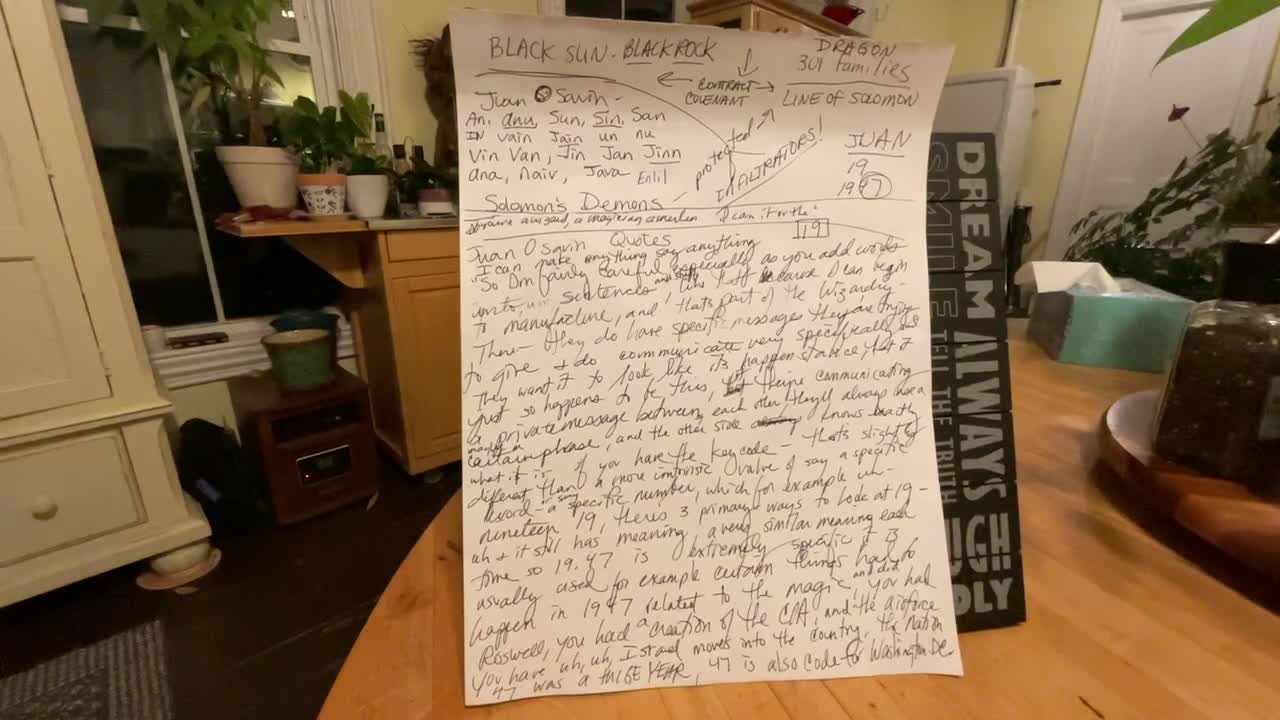 BLACK SUN - BLACKROCK
DRAGON
301 families
CONTRACT
COVENANT
LINE OF SOLOMON
Juan O Savin -
An, anu, Sun, Sin, San
IN vain Jain un nu
Vin Van, Jin Jan Jinn
ana, nair, Java Enlil
protected
INFILTRATORS!
JUAN
19
1947
Solomon's Demons -
a wizard, a magician
119
Juan O Savin Quotes
I can make anything say anything
"So Im fairly careful especially as you add words
into, um sentences and stuff like that because I can begin
to manufacture, and that's part of the Wizardry -
There - they do have specific messages they are trying
to give & do communicate very specifically
They want it to look like its happenstance, that it
just so happens to be this, but theyre communicating
a private message between each other they'll always use a
certain phrase, and the other side knows exactly
what it is - if you have the key code - that's slightly
different than a more intrinsic value of say a specific
word - a specific number, which for example uh -
nineteen 19, there's 3 primary ways to look at 19 -
uh & it still has meaning, a very similar meaning each
time so 19. 47 is extremely specific it is
usually used for example certain things had to
happen in 1947 related to the magic, and did you had
Roswell, you had a creation of the CIA, and the airforce
you have uh, uh, Israel moves into the country, the nation
47 was a HUGE YEAR, 47 is also code for Washington DC
DREAM ALWAYS
SMILE TELL THE TRUTH